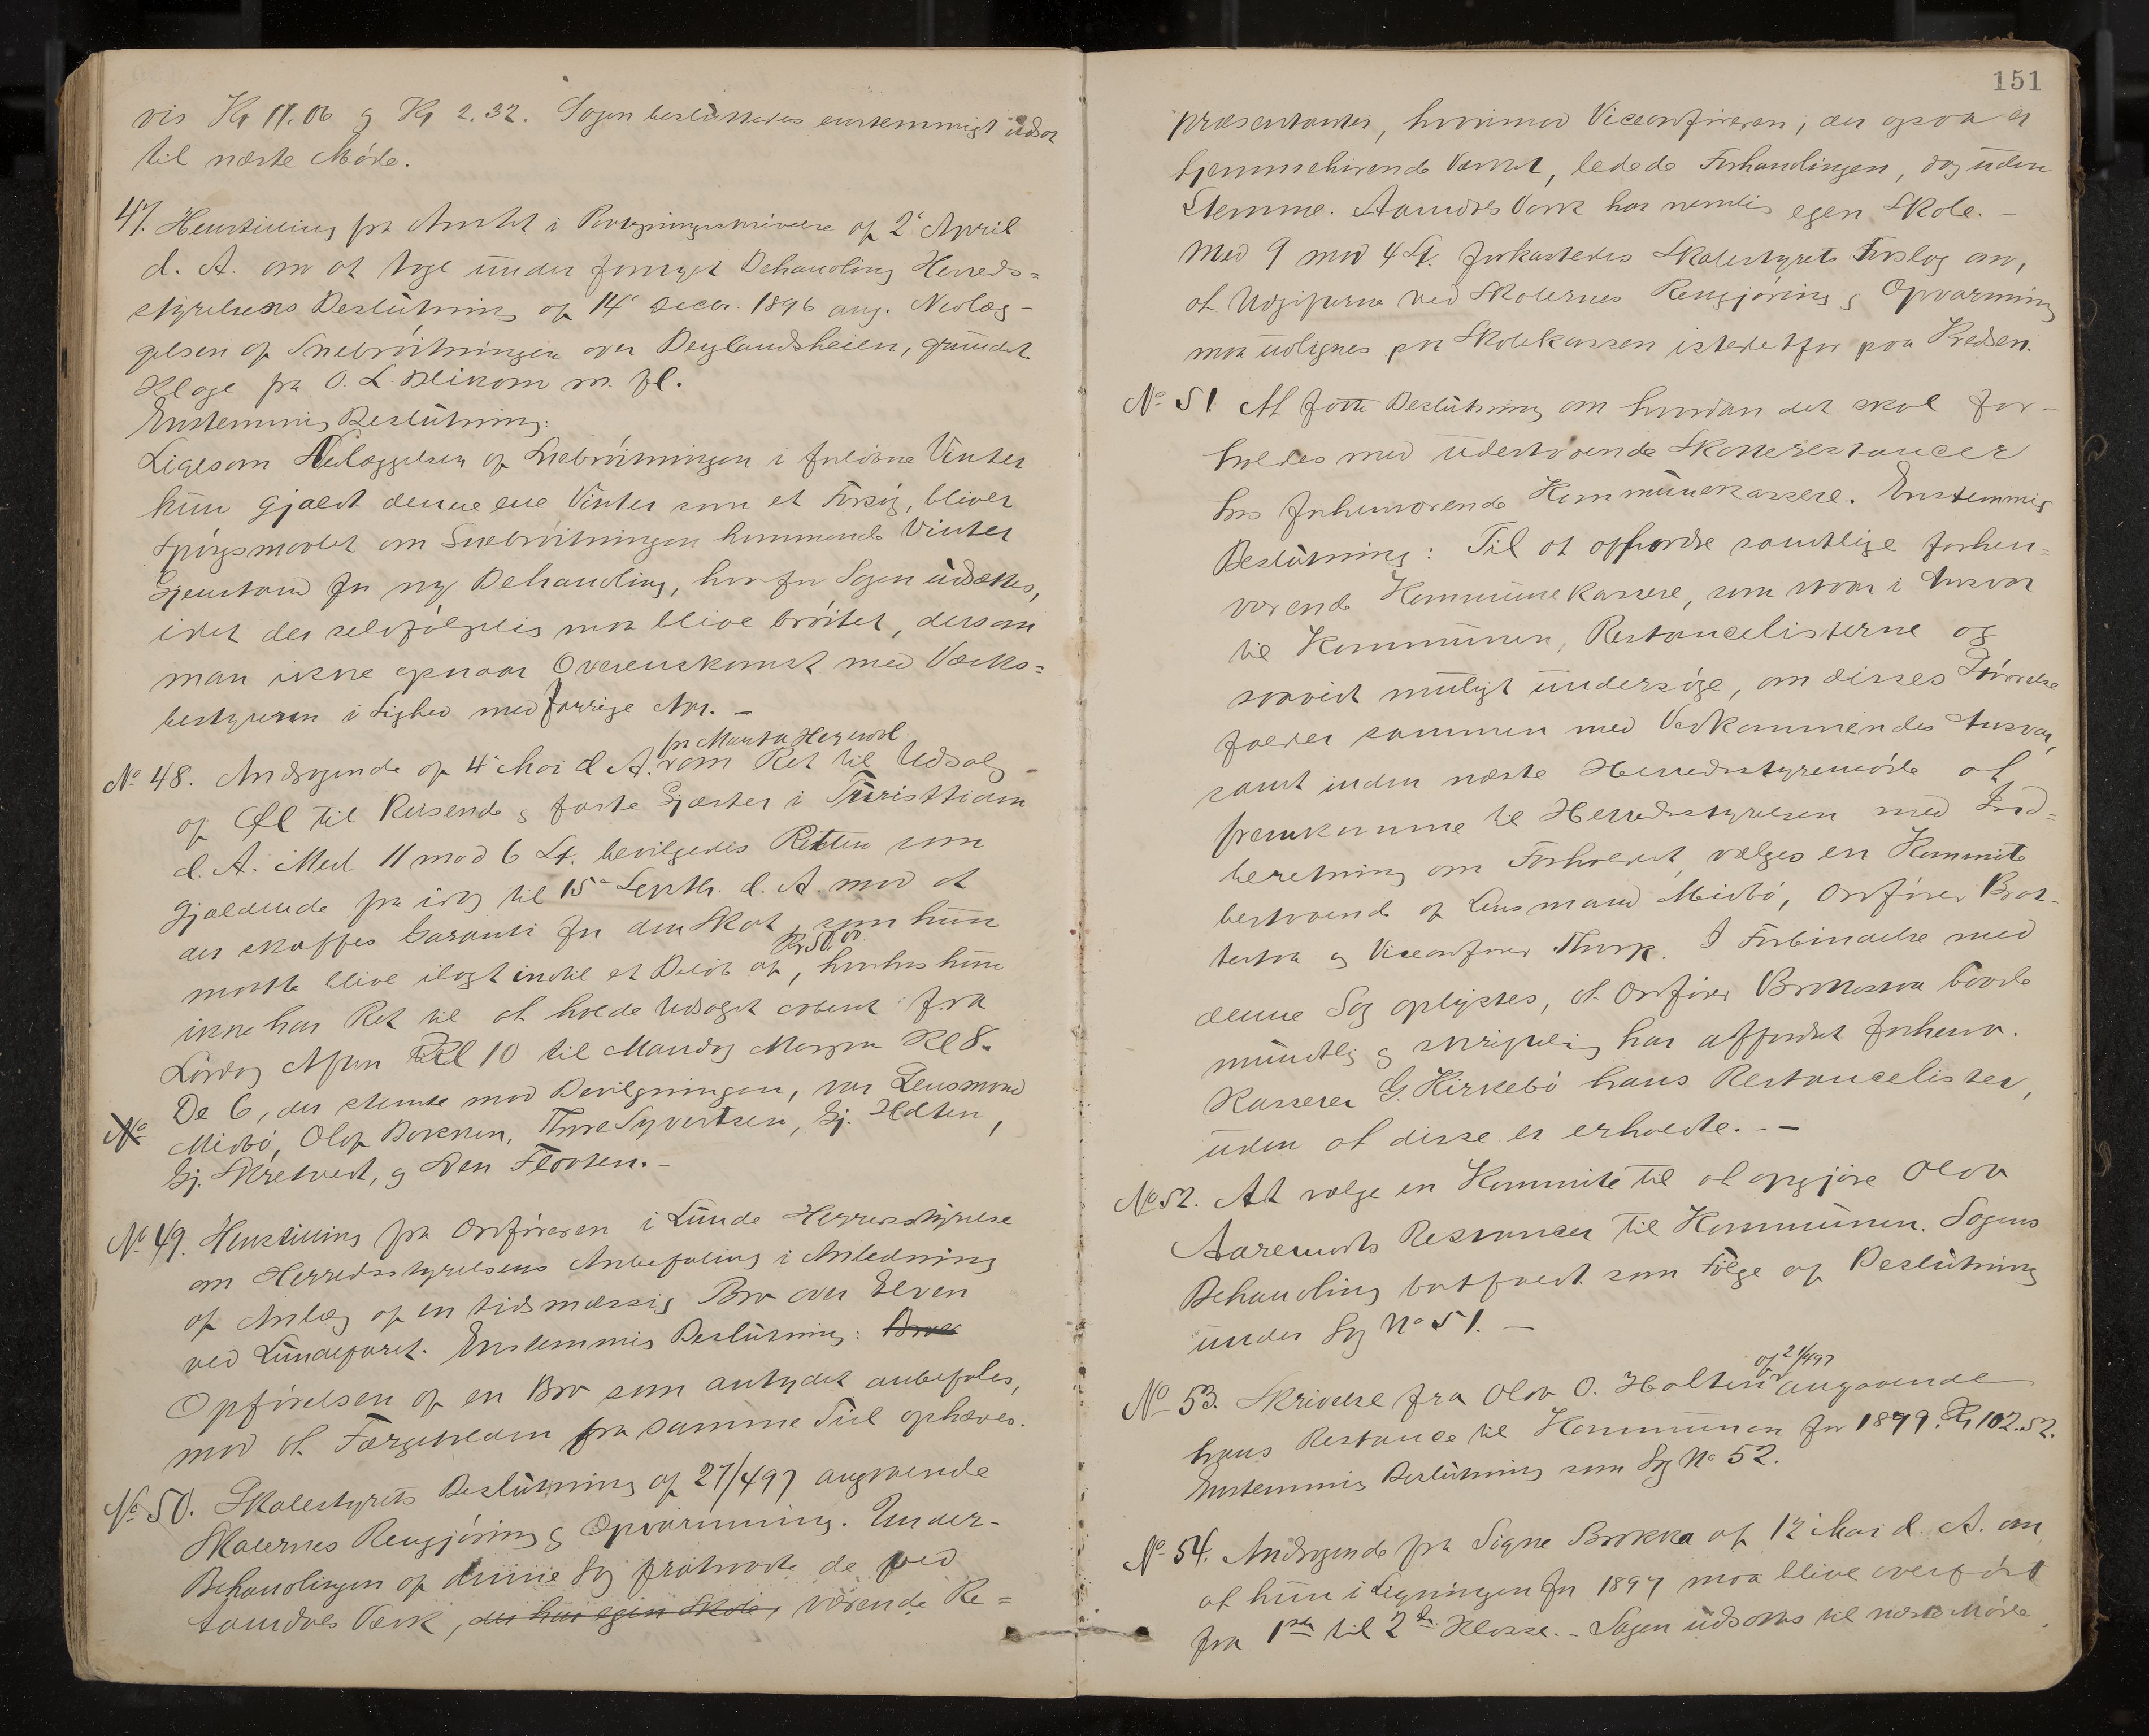 vis Kr 11.06 g Kr 2.32. Sagen besluttedes enstemmigt udsat
til næste Møde.
47. Henstilling fra Amtet i Paategningsskrivelse af 2' April
d. A. om at tage under fornyet Behandling Herreds=
styrelsens Beslutning af 14' Decbr. 1896 ang. Nedlæg-
gelsen af Snebrøitningen over Deylandsheien, grundet
Klage fra O. L. m. fl.
Enstemmig Beslutning:
Ligesom Nedlæggelsen af Snebrøitningen i forløbne Vinter
kun gjaldt denne ene Vinter som et Forsøg, bliver
Spørgsmaalet om Snebrøitningen kommende Vinter
Gjenstand for ny Behandling, hvorfor Sagen udsættes,
idet der selvfølgelig maa blive brøitet, dersom
man ikke opnaar Overenskomst med Værks=
bestyreren i Lighed med forrige Aar. —
fra Marta Heggenvol
No 48. Andragende af 4' Mai d A. om Ret til Udsalg
af Øl til Reisende g faste Gjæster i Turisttiden
d. A. Med 11 mod 6 St. bevilgedes Retten som
gjældende fra idag til 15' Septbr. d. A. mod at
der skaffes Garanti for den Skat, som hun
Kr 50.00
maatte blive ilagt indtil et Beløb af, hvorhos hun
ikke har Ret til at holde Udsalget aabent fra
Lørdag Aften Kl 10 til Mandag Morgen Kl 8.
De 6, der stemte mod Bevilgningen, var Lensmand
No Midbø, Olaf Bakken, Thore Syvertsen, Gj. Holten,
Gj. Skretvedt, g Sven Flaaten. —
No 49. Henstilling fra Ordføreren i Lunde Herredsstyrelse
om Herredsstyrelsens Anbefaling i Anledning
af Anlæg af en tidsmæssig Bro over Elven
ved Lundefaret. Enstemmig Beslutning: Broes
Opførelsen af en Bro som antydet anbefales,
mod at Færgeholden fra samme Tid ophæves.
No 50. Skolestyrets Beslutning af 27/4 97 angaaende
Skolernes Rengjøring g Opvarmning. Under-
Behandlingen af denne Sag fratraadte de ved
Aamdals Værk, der har egen Skole, værende Re=
151
præsentanter, hvorimod Viceordføreren, der ogsaa er
hjemmehørende Værket, ledede Forhandlingen, dog uden
Stemme. Aamdals Værk har nemlig egen Skole. —
Med 9 mod 4 St. forkastedes Skolestyrets Forslag om,
at Udgifterne ved Skolernes Rengjøring g Opvarming
maa udlignes paa Skolekassen istedetfor paa Kredsen.
No 51. At fatte Beslutning om hvordan det skal for-
holdes med udestaaende Skatterestancer
hos forhenværende Kommunekasserer. Enstemmig
Beslutning: Til at opfordre samtlige forhen=
værende Kommunekasserere, som staar i Ansvar
til Kommunen, Restancelisterne og
saavidt muligt undersøge, om disses Størrelse
falder sammen med Vedkommendes Ansvar,
samt inden næste Herredsstyremøde at
fremkomme til Herredsstyrelsen med Ind=
beretning om Forholdet, vælges en Kommite
bestaaende af Lensmand Midbø, Ordfører Brot-
testaa g Viceordfører Thorp. I Forbindelse med
denne Sag oplystes, at Ordfører Brottestaa baade
mundtlig g skriftlig har affordret forhenv.
Kasserer G. Kirkebø hans Restancelister,
uden at disse er erholdte. - —
No 52. At vælge en Kommite til at opgjøre Olav
Aaremodts Restancer til Kommunen. Sagens
Behandling bortfaldt som Følge af Beslutning
under Sag No 51. —
af 21/4 97
No 53. Skrivelse fra Olav O. Holten angaaende
hans Restance til Kommunen for 1879. Kr 102.52.
Enstemmig Beslutning som Sag No 52.
No 54. Andragende fra Signe Brokka af 12' Mai d. A. om
at hun i Ligningen for 1897 maa blive overført
fra 1ste til 2den Klasse. - Sagen udsattes til næste Møde.